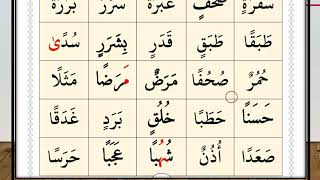 بَرَرَةٍ سُرُرٌ غَبَرَةٌ صُحُفٍ سَفَرَةٍ
سُدًى بِشَرَرٍ قَدَرٍ طَبَقٍ طَبَقًا
مَثَلًا مَرَضًا مَرَضٌ صُحُفًا حُمُرٌ
غَدَقًا بَرَدٍ خُلُقٍ حَطَبًا حَسَنًا
حَرَسًا عَجَبًا شُهُبًا أُذُنٌ صَعَدًا